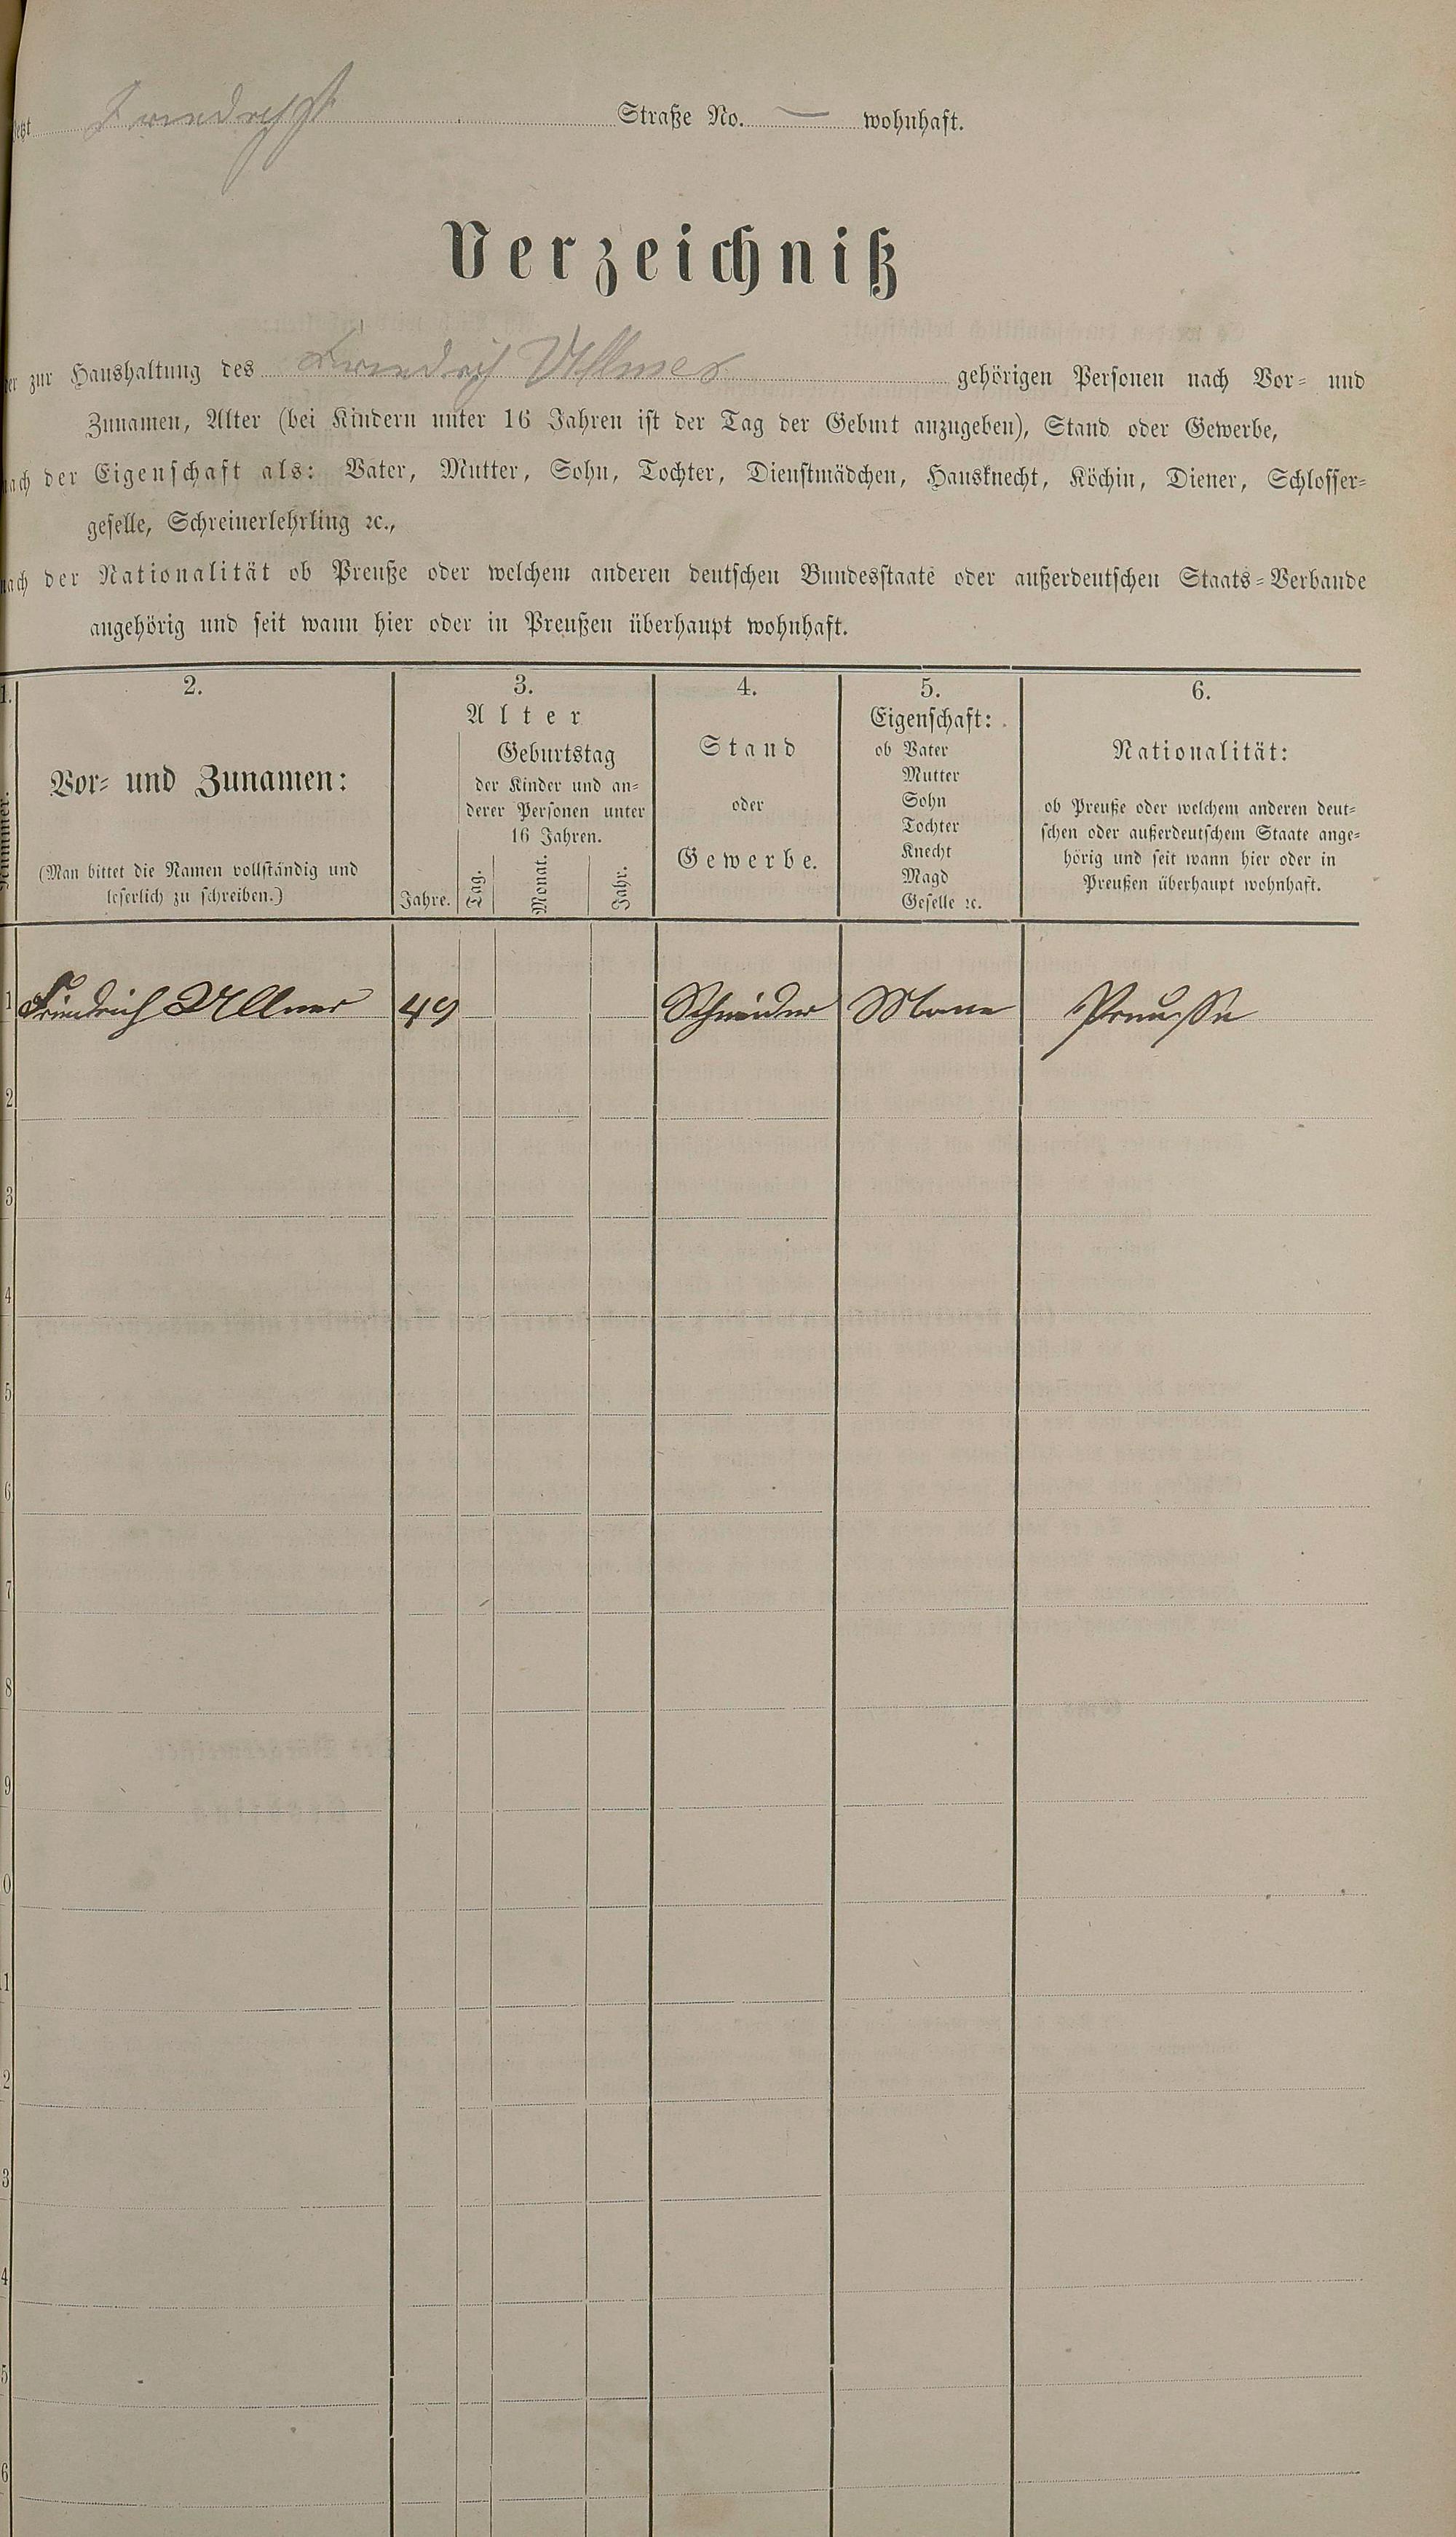 jetzt Friedrichst Straße No. — wohnhaft.
Verzeichniß
der zur Haushaltung des Friedrich Ullmer gehörigen Personen nach Vor- und
Zunamen, Alter (bei Kindern unter 16 Jahren ist der Tag der Geburt anzugeben), Stand oder Gewerbe,
nach der Eigenschaft als: Vater, Mutter, Sohn, Tochter, Dienstmädchen, Hausknecht, Köchin, Diener, Schlosser-
geselle, Schreinerlehrling ꝛc.,
nach der Nationalität ob Preuße oder welchem anderen deutschen Bundesstaate oder außerdeutschen Staats-Verbande
angehörig und seit wann hier oder in Preußen überhaupt wohnhaft.
1.
Nummer.
2.
Vor- und Zunamen:
(Man bittet die Namen vollständig und
leserlich zu schreiben.)
3.
Alter
Jahre.
Geburtstag
der Kinder und an-
derer Personen unter
16 Jahren.
Tag.
Monat.
Jahr.
4.
Stand
oder
Gewerbe.
5.
Eigenschaft:
ob Vater
Mutter
Sohn
Tochter
Knecht
Magd
Geselle ꝛc.
6.
Nationalität:
ob Preuße oder welchem anderen deut-
schen oder außerdeutschem Staate ange-
hörig und seit wann hier oder in
Preußen überhaupt wohnhaft.
1 Friedrich Ullmer 49 Schneider Mann Preusse
2
3
4
5
6
7
8
9
0
1
2
3
4
5
6